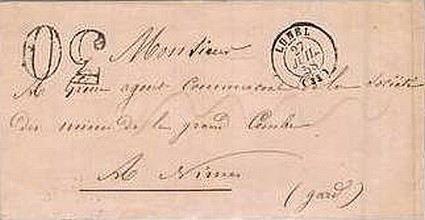 30
LUNEL
27
JUIL.
58
(33)
Monsieur
agent Commercial de la Société
des mines de la grand Combe
A Nimes
(gard)